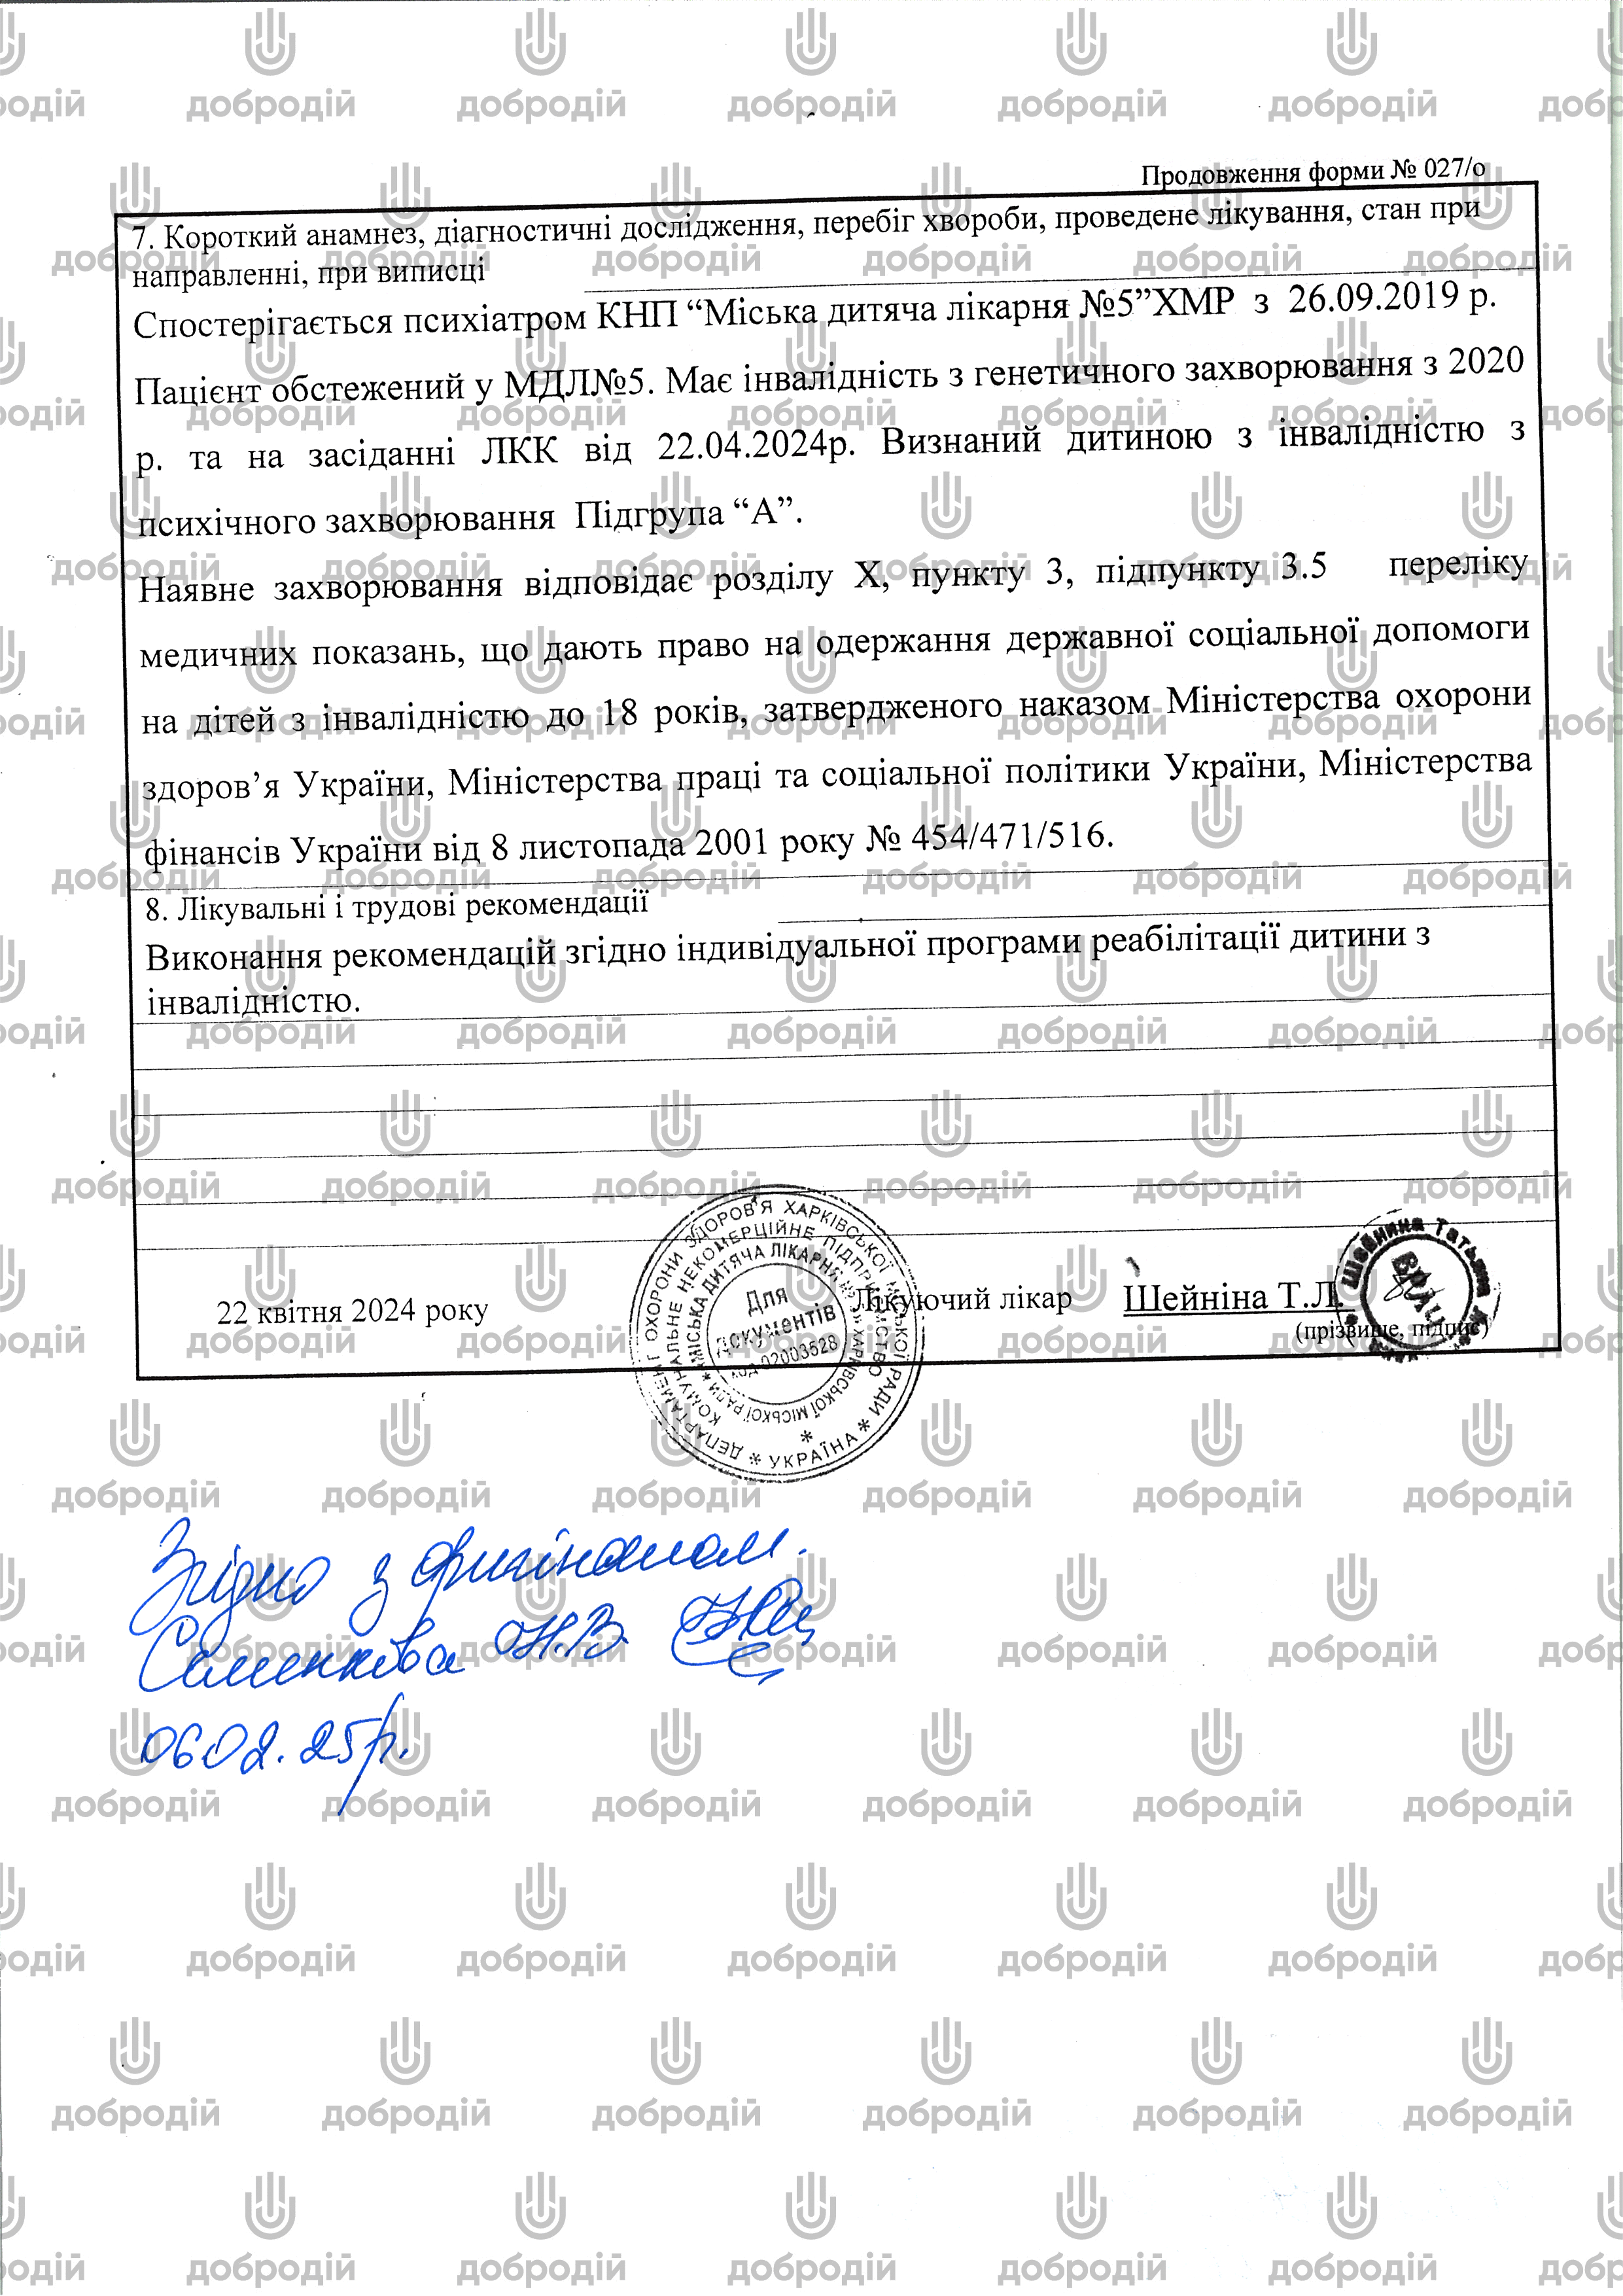 Продовження форми № 027/о
7. Короткий анамнез, діагностичні дослідження, перебіг хвороби, проведене лікування, стан при
направленні, при виписці
Спостерігається психіатром КНП “Міська дитяча лікарня №5”ХМР з 26.09.2019 р.
Пацієнт обстежений у МДЛ№5. Має інвалідність з генетичного захворювання з 2020
р. та на засіданні ЛКК від 22.04.2024р. Визнаний дитиною з інвалідністю з
психічного захворювання Підгрупа “А”.
Наявне захворювання відповідає розділу X, пункту 3, підпункту 3.5 переліку
медичних показань, що дають право на одержання державної соціальної допомоги
на дітей з інвалідністю до 18 років, затвердженого наказом Міністерства охорони
здоров’я України, Міністерства праці та соціальної політики України, Міністерства
фінансів України від 8 листопада 2001 року № 454/471/516.
8. Лікувальні і трудові рекомендації
Виконання рекомендацій згідно індивідуальної програми реабілітації дитини з
інвалідністю.
22 квітня 2024 року
Лікуючий лікар Шейніна Т.Л.
(прізвище, підпис)
ДЕПАРТАМЕНТ ОХОРОНИ ЗДОРОВ'Я ХАРКІВСЬКОЇ МІСЬКОЇ РАДИ * УКРАЇНА *
КОМУНАЛЬНЕ НЕКОМЕРЦІЙНЕ ПІДПРИЄМСТВО
«МІСЬКА ДИТЯЧА ЛІКАРНЯ №5» ХАРКІВСЬКОЇ МІСЬКОЇ РАДИ
Для
документів
код 02003528
Шейнина Татьяна
ВРАЧ
Згідно з оригіналом.
Семенкова Н.В.
06.02.25р.
добродій